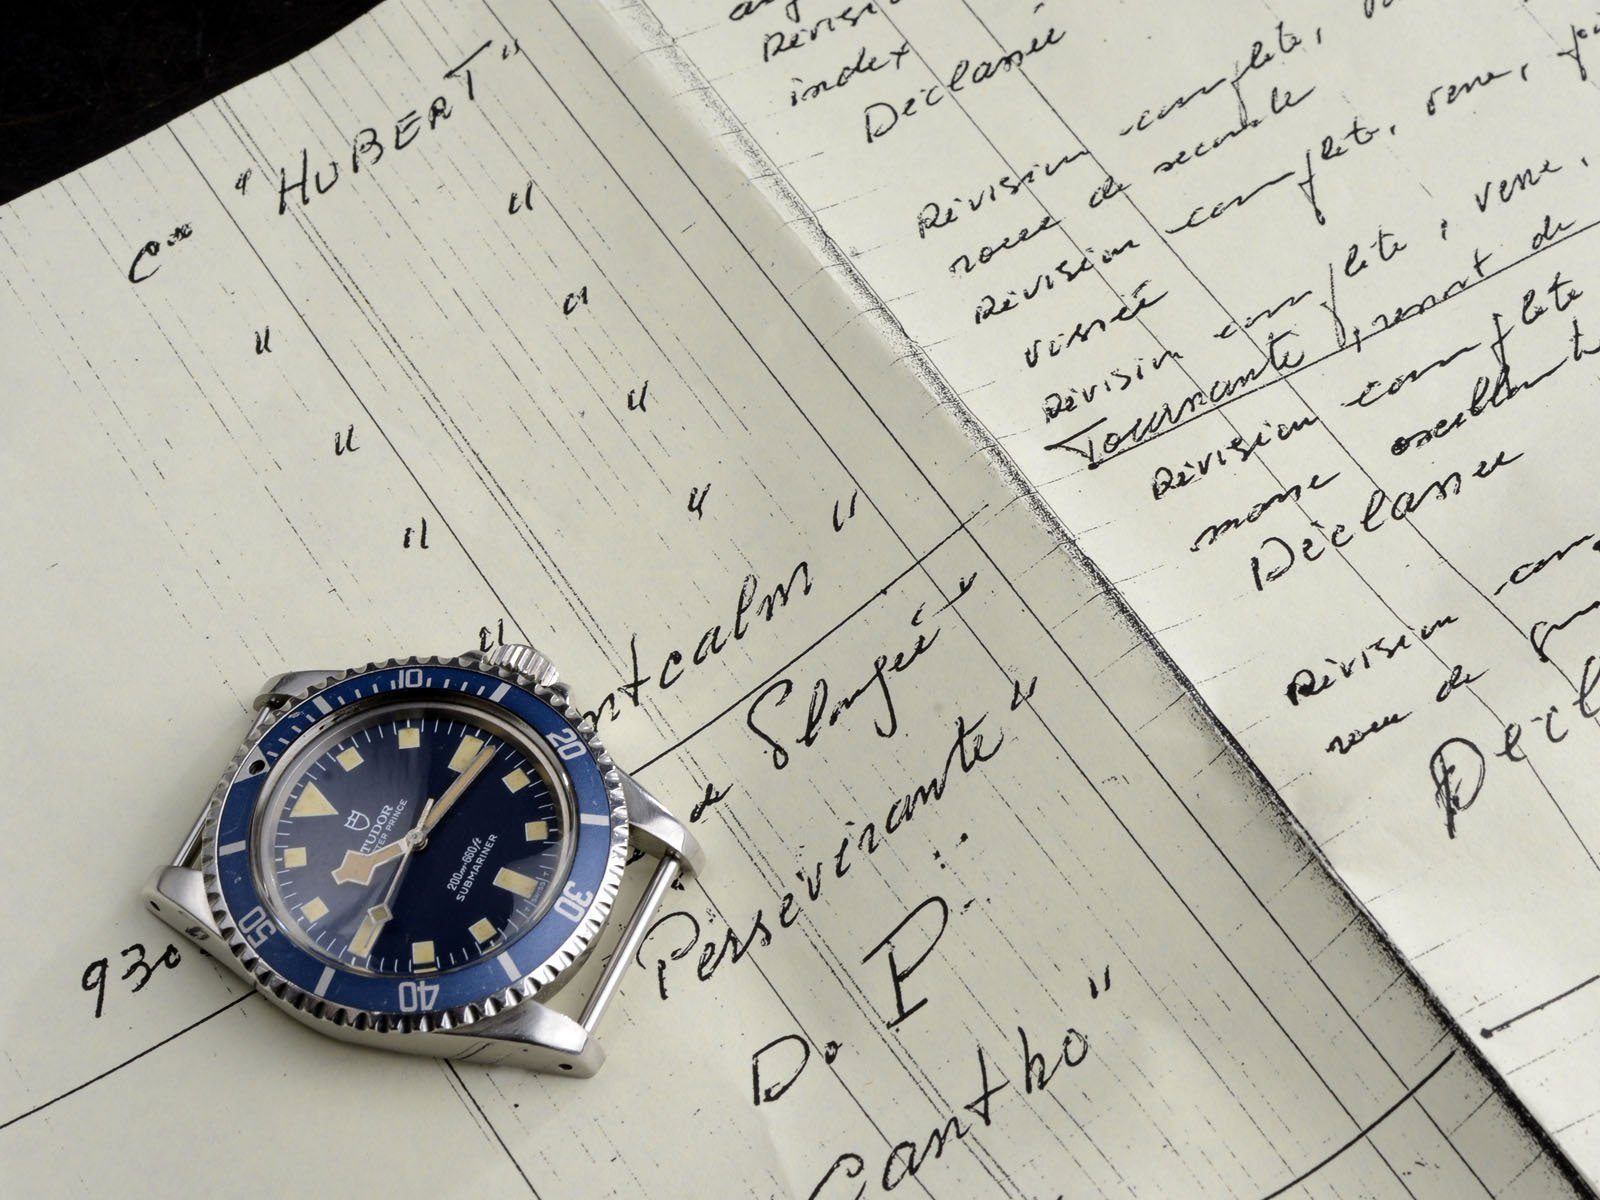 "HUBERT"
"
"
"
"
"
"
"
"
ntcalm "
de Plongée
Persévérante "
Do P.
Cantho "
930
index
Déclassée
Révision complète,
roue de seconde
Révision complète, verre,
vissée
Révision complète, verre,
Tournante, ressort de
Révision complète
masse oscillante
Déclassée
Révision com
roue de
Décl
10
20
30
40
50
TUDOR
TER PRINCE
200m=660ft
SUBMARINER
SWISS